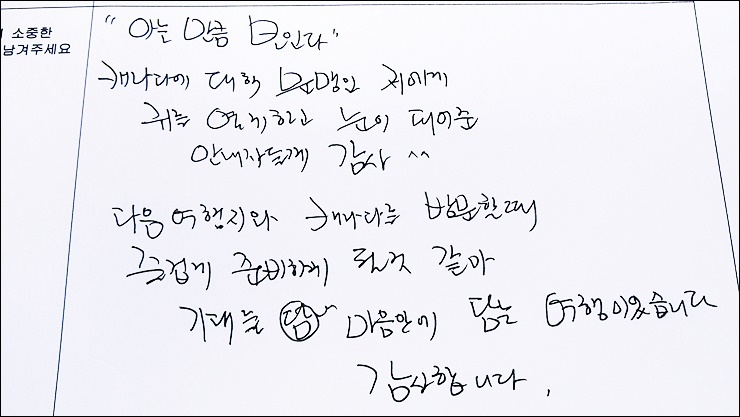 소중한
남겨주세요
"아는 만큼 보인다"
캐나다에 대해 문맹인 저에게
귀를 열게하고 눈이 떼어준
안내자들께 감사 ^^
다음 여행지와 캐나다를 방문할때
즐겁게 준비하게 될것 같아
기대를 담 마음안에 담는 여행이었습니다
감사합니다.